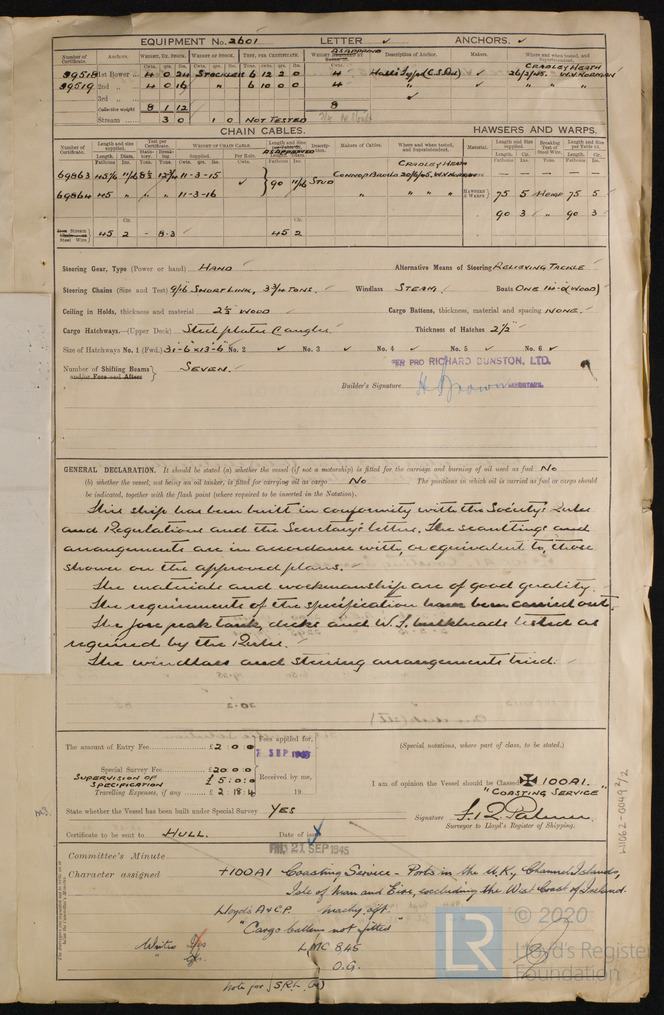 EQUIPMENT No. 2601 LETTER ✓ ANCHORS. ✓
Number of Certificate. Anchors. WEIGHT, EX. STOCK. WEIGHT OF STOCK. TEST, PER CERTIFICATE. WEIGHT AS APPROVED Description of Anchor. Makers. Where and when tested, and Superintendent.
Cwts. qrs. lbs. Cwts. qrs. lbs. Tons. cwts. qrs. lbs. Cwts.
39518 1st Bower 4 0 24 STOCKLESS 6 12 2 0 4 Halls Type (C.S. ✓ CRADLEY HEATH 26/2/45. W.N. NORMAN
39519 2nd „ 4 0 16 „ 6 10 0 0 4 „ ✓ „ „ „
3rd „ ✓
Collective weight 8 1 12 8
Stream 3 0 1 0 NOT TESTED
CHAIN CABLES. HAWSERS AND WARPS.
Number of Certificate. Length and size supplied. Test per Certificate. WEIGHT OF CHAIN CABLE. Length and size AS APPROVED Description. Makers of Cables. Where and when tested, and Superintendent. Material. Length and Size supplied. Breaking Test of Steel Wire. Length and Size per Table 53.
Fathoms Diam. Statutory. Breaking. Supplied. Per Rule. Fathoms Diam. Length. Cir. Length. Cir.
69863 45⅞ 11/16 8½ 12¾ 11-3-15 ✓ 90 11/16 STUD CRADLEY HEATH 20/6/45. W.N. NORMAN
69864 45 „ „ „ 11-3-16 „ „ „ „ HAWSERS & WARPS 75 5 HEMP 75 5
90 3 „ 90 3
Stream Steel Wire 45 2 - 8.3 45 2
Steering Gear, Type (Power or hand) HAND Alternative Means of Steering RELIEVING TACKLE
Steering Chains (Size and Test) 9/16 SHORT LINK, 3¾ TONS. Windlass STEAM. Boats ONE (WOOD)
Ceiling in Holds, thickness and material 2½ WOOD Cargo Battens, thickness, material and spacing NONE.
Cargo Hatchways.—(Upper Deck) Steel plates & angles. Thickness of Hatches 2½"
Size of Hatchways No. 1 (Fwd.) 31-6 x 13-6 No. 2 ✓ No. 3 ✓ No. 4 ✓ No. 5 ✓ No. 6 ✓
Number of Shifting Beams and/or Fore and Afters SEVEN.
PER PRO RICHARD DUNSTON, LTD.
Builder's Signature H Brown SECRETARY.
GENERAL DECLARATION. It should be stated (a) whether the vessel (if not a motorship) is fitted for the carriage and burning of oil used as fuel No
(b) whether the vessel, not being an oil tanker, is fitted for carrying oil as cargo No The positions in which oil is carried as fuel or cargo should
be indicated, together with the flash point (where required to be inserted in the Notation).
This ship has been built in conformity with the Society's Rules
and Regulations and the Secretary's letters. The scantlings and
arrangements are in accordance with, or equivalent to, those
shown on the approved plans.
The materials and workmanship are of good quality.
The requirements of the specification have been carried out.
The fore peak tank, decks and W.T. bulkheads tested as
required by the Rules.
The windlass and steering arrangements tried.
The amount of Entry Fee £2:0:0 Fees applied for, 7 SEP 1945 (Special notations, where part of class, to be stated.)
Special Survey Fee £20:0:0
SUPERVISION OF SPECIFICATION £5:0:0 Received by me, I am of opinion the Vessel should be Classed ✠ 100A1.
Travelling Expenses, if any £2:18:4 19 "COASTING SERVICE"
State whether the Vessel has been built under Special Survey YES Signature
Surveyor to Lloyd's Register of Shipping.
Certificate to be sent to HULL. Date of issue
FRI. 21 SEP 1945
Committee's Minute
Character assigned +100A1 Coasting Service - Ports in the U.K, Channel Islands,
Isle of Man and Eire, excluding the West Coast of Ireland.
Lloyds A & C.P. machy aft.
"Cargo battens not fitted"
LMC 8.45
O.G.
W1062-0049 2/2
© 2020
LR
Lloyd's Register
Foundation